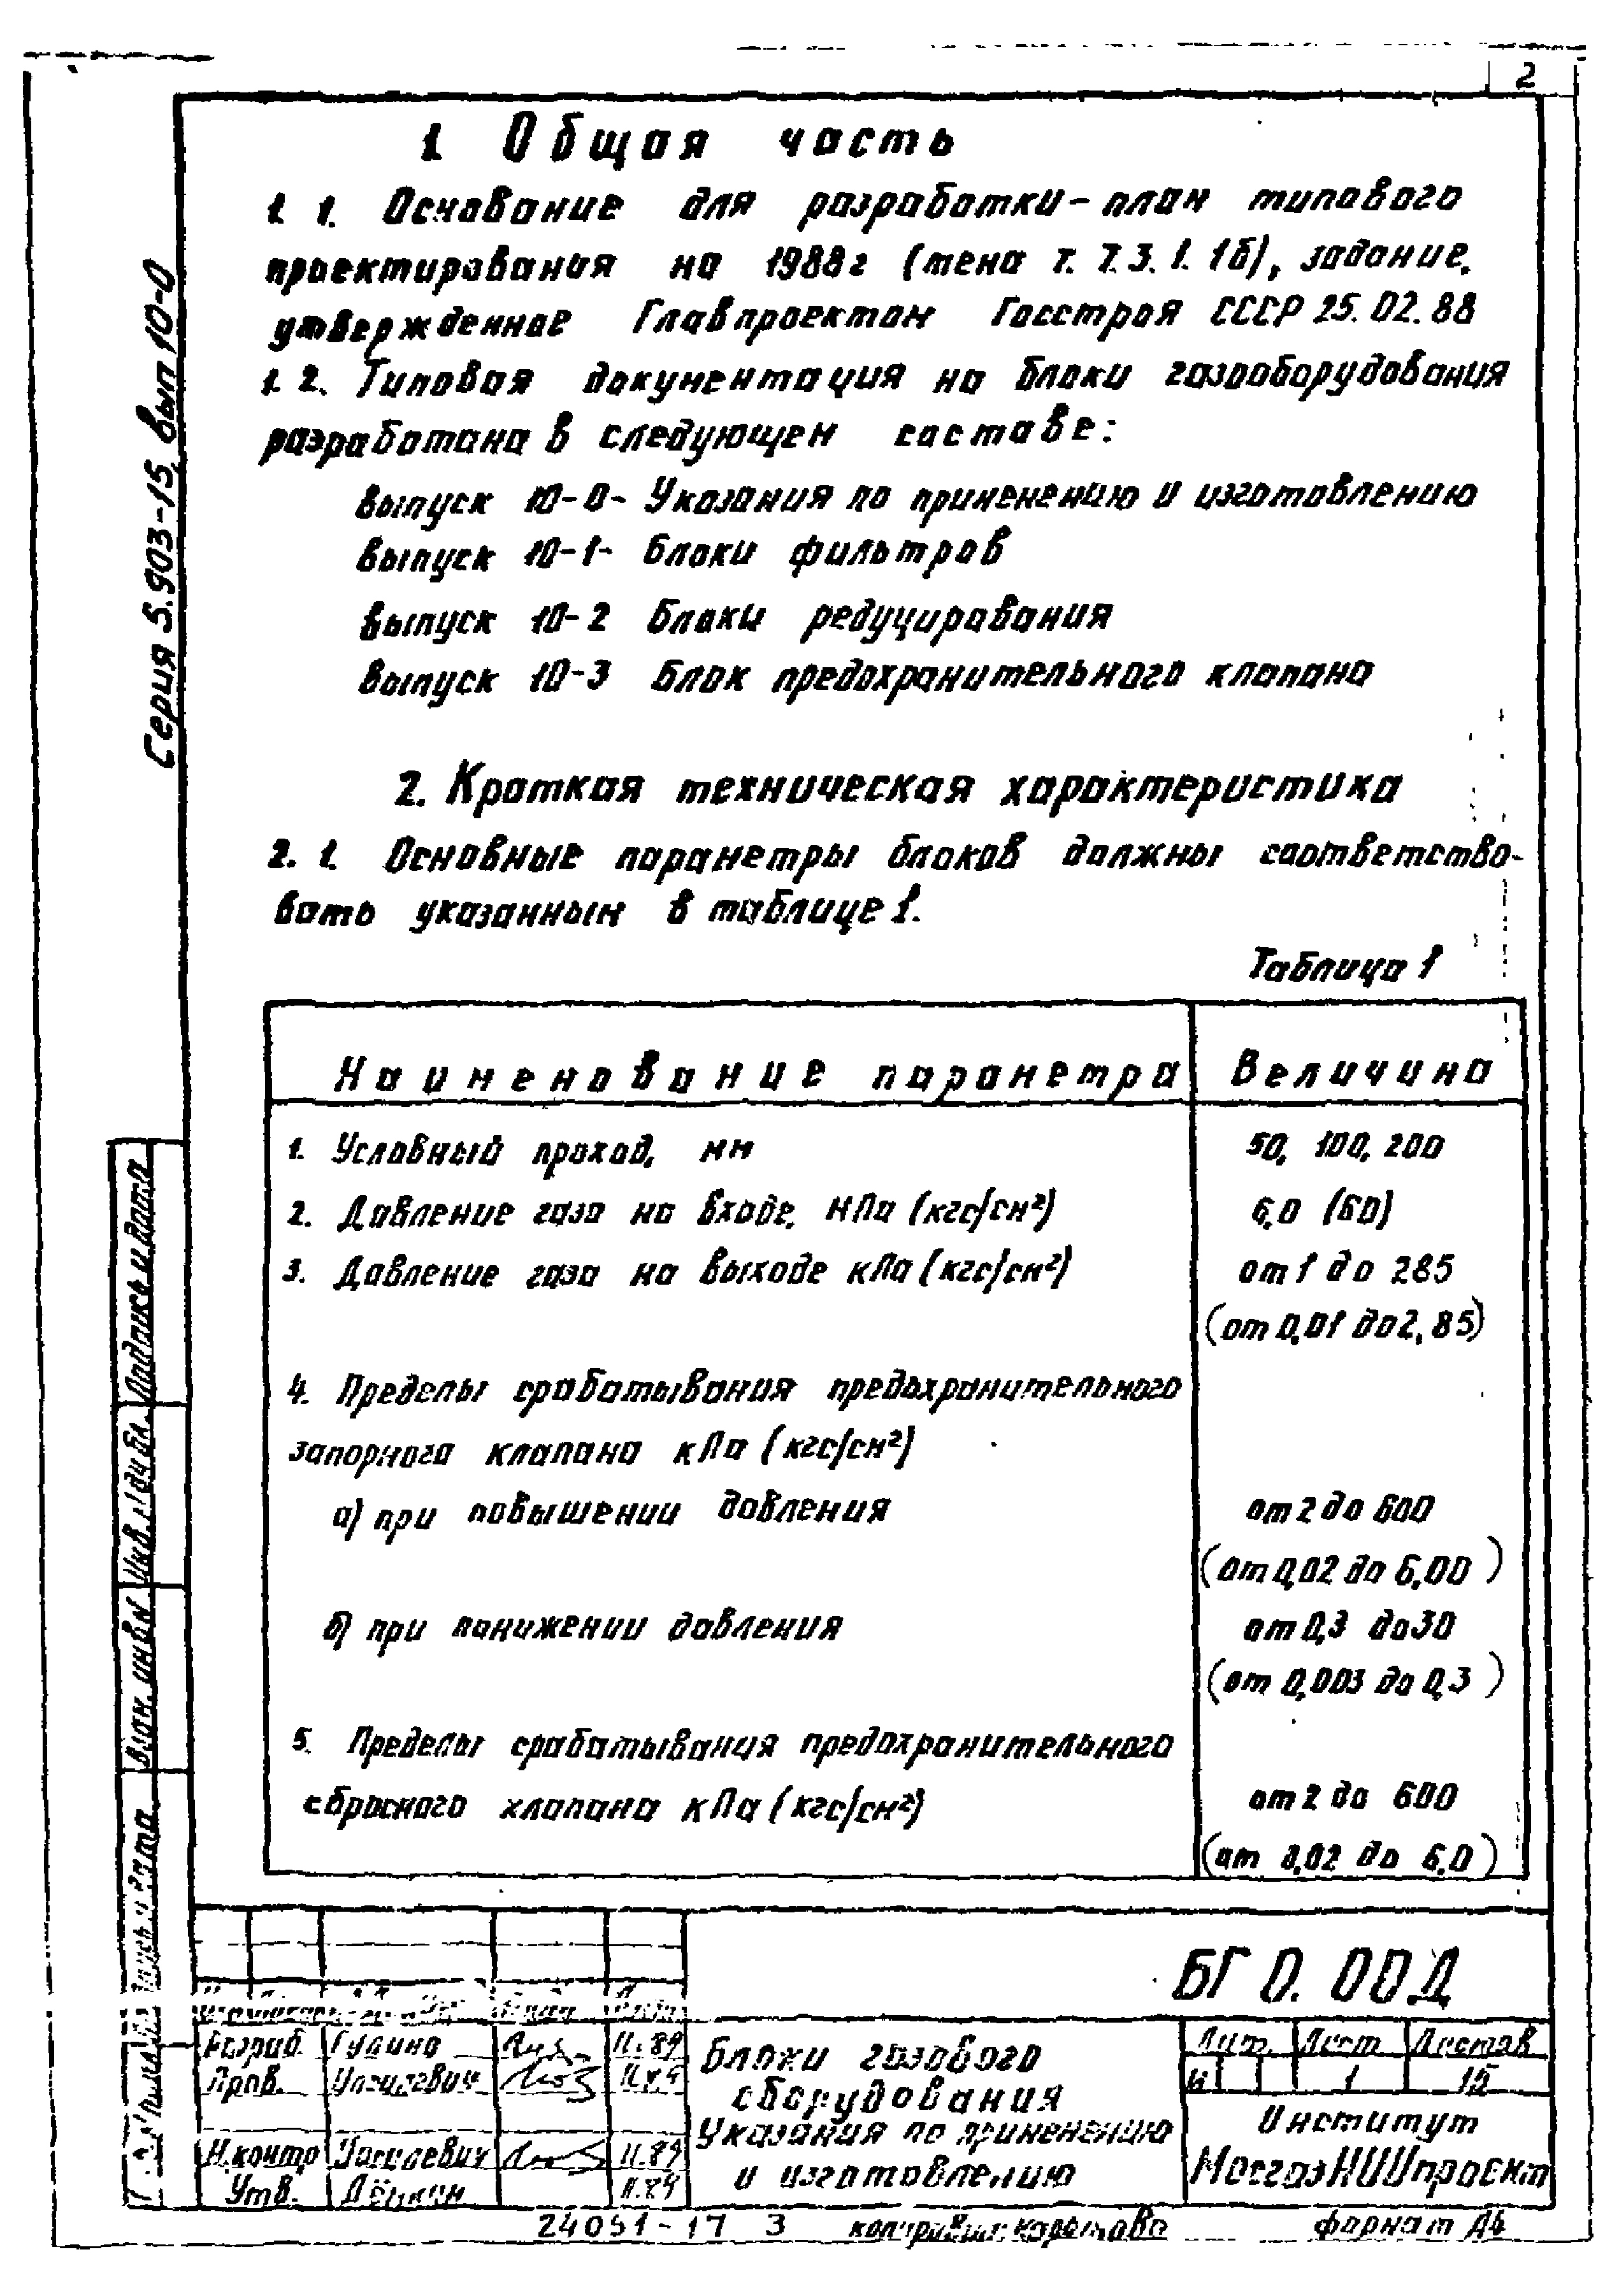 2
Серия 5.903-15, Вып 10-0
1 Общая часть
1.1. Основание для разработки - план типового
проектирования на 1988г (тема т. 7.3.1.16), задание,
утвержденное Главпроектом Госстроя СССР 25.02.88
1.2. Типовая документация на блоки газооборудования
разработана в следующем составе:
выпуск 10-0- Указания по применению и изготовлению
выпуск 10-1- Блоки фильтров
выпуск 10-2 Блоки редуцирования
выпуск 10-3 Блок предохранительного клапана
2. Краткая техническая характеристика
2.1. Основные параметры блоков должны соответство-
вать указанным в таблице 1.
Таблица 1
Наименование параметра Величина
1. Условный проход, мм 50, 100, 200
2. Давление газа на входе, МПа (кгс/см²) 6,0 (60)
3. Давление газа на выходе кПа (кгс/см²) от 1 до 285
(от 0,01 до 2,85)
4. Пределы срабатывания предохранительного
запорного клапана кПа (кгс/см²)
а) при повышении давления от 2 до 600
(от 0,02 до 6,00)
б) при понижении давления от 0,3 до 30
(от 0,003 до 0,3)
5. Пределы срабатывания предохранительного
сбросного клапана кПа (кгс/см²) от 2 до 600
(от 0,02 до 6,0)
Подпись и дата
Инв. № дубл.
Взам. инв №
БГ 0.00Д
Разраб. Гудино 11.89
Пров. 11.89
Н.контр Уасилевич 11.89
Утв. Дёмкин 11.89
Блоки газового
оборудования
Указания по применению
и изготовлению
Лит. Лист Листов
И 1 15
Институт
МосгазНИИпроект
24051-17 3 копировал: Коротаева формат А4